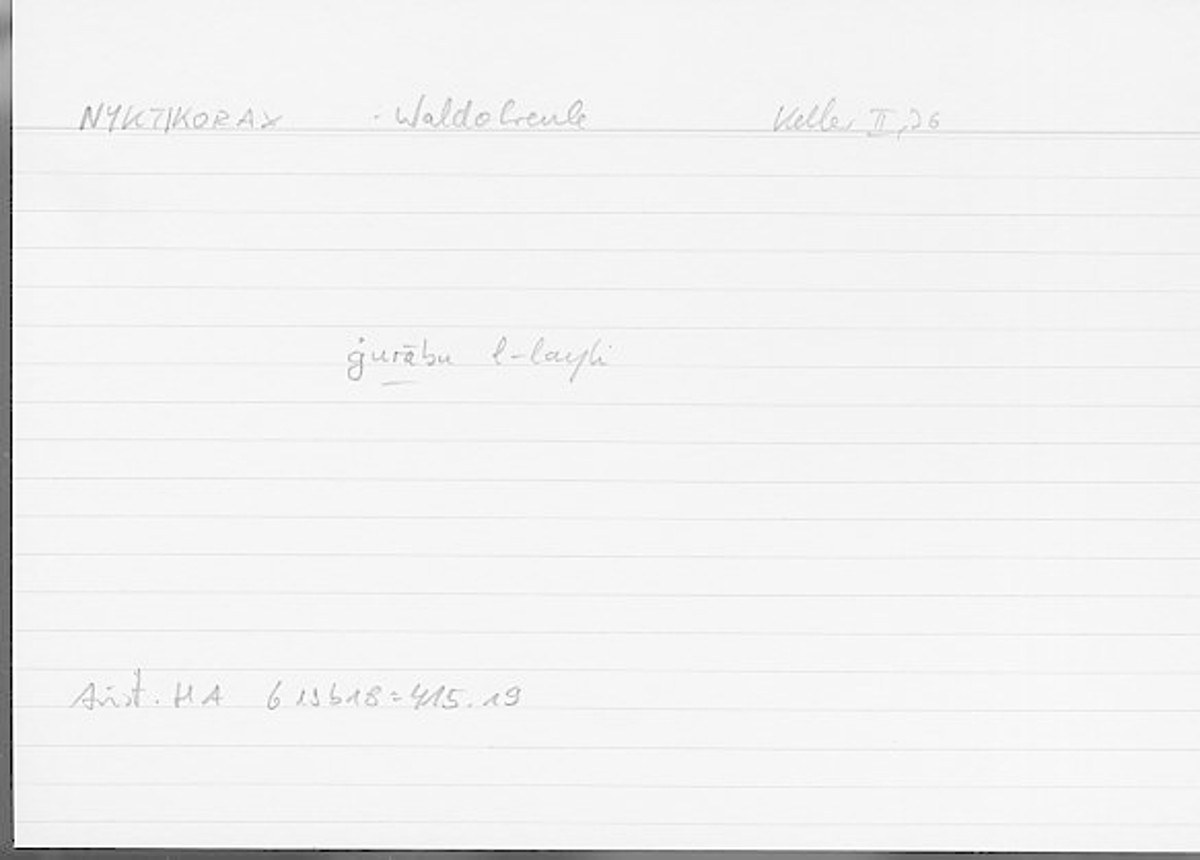 NYKTIKORAX - Waldohreule Keller II, 36
ġurābu l-layli
Arist. HA 619b18 = 415.19